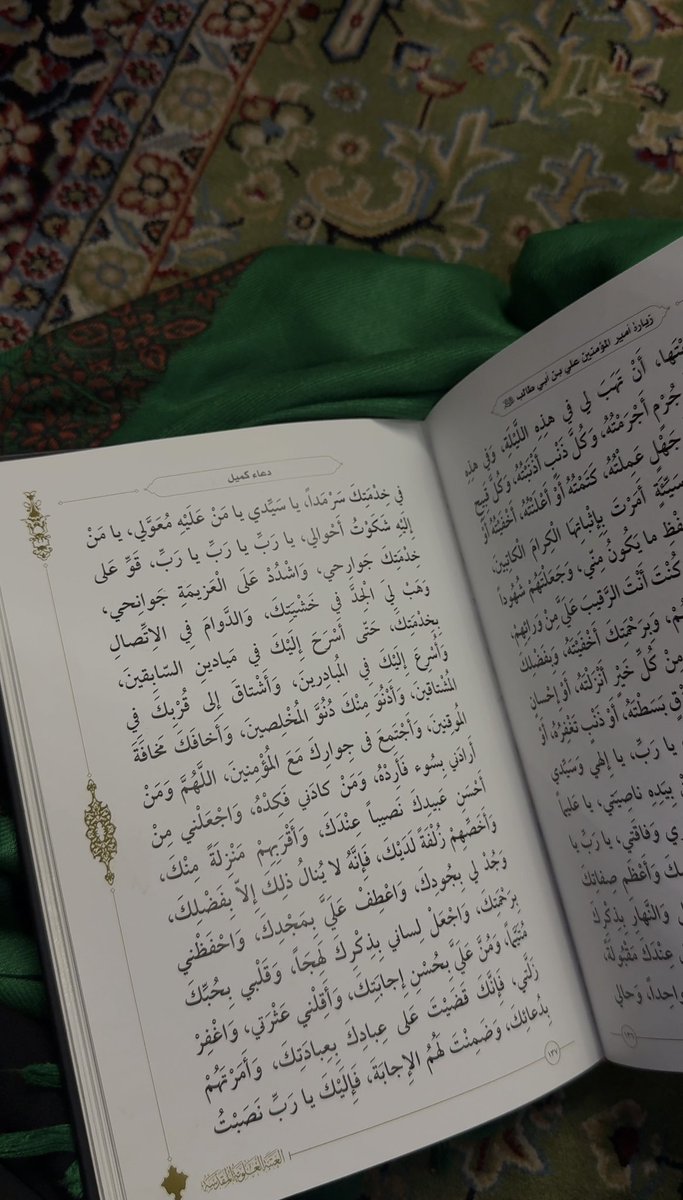 زيارة أمير المؤمنين علي بن أبي طالب
أَنْ تَهَبَ لي في هذِهِ اللَّيْلَةِ، وَفي هذِهِ
جُرْمٍ أَجْرَمْتُهُ، وَكُلَّ ذَنْبٍ أَذْنَبْتُهُ، وَكُلَّ قَبيحٍ
جَهْلٍ عَمِلْتُهُ، كَتَمْتُهُ أَوْ أَعْلَنْتُهُ، أَخْفَيْتُهُ أَوْ
سَيِّئَةٍ أَمَرْتَ بِإِثْباتِهَا الْكِرامَ الْكاتِبينَ،
ما يَكُونُ مِنّي، وَجَعَلْتَهُمْ شُهُوداً
كُنْتَ أَنْتَ الرَّقيبَ عَلَيَّ مِنْ وَرائِهِمْ،
وَبِرَحْمَتِكَ أَخْفَيْتَهُ، وَبِفَضْلِكَ
مِنْ كُلِّ خَيْرٍ أَنْزَلْتَهُ، أَوْ إِحْسانٍ
بَسَطْتَهُ، أَوْ ذَنْبٍ تَغْفِرُهُ، أَوْ
يا رَبِّ، يا إِلهي وَسَيِّدي
بِيَدِهِ ناصِيَتي، يا عَليماً
وَفاقَتي، يا رَبِّ يا
وَأَعْظَمِ صِفاتِكَ
وَالنَّهارِ بِذِكْرِكَ
عِنْدَكَ مَقْبُولَةً،
واحِداً، وَحالي
١٣٦
دعاء كميل
في خِدْمَتِكَ سَرْمَداً، يا سَيِّدي يا مَنْ عَلَيْهِ مُعَوَّلي، يا مَنْ
إِلَيْهِ شَكَوْتُ أَحْوالي، يا رَبِّ يا رَبِّ يا رَبِّ، قَوِّ عَلى
خِدْمَتِكَ جَوارِحي، وَاشْدُدْ عَلَى الْعَزيمَةِ جَوانِحي،
وَهَبْ لِيَ الْجِدَّ في خَشْيَتِكَ، وَالدَّوامَ فِي الاِتِّصالِ
بِخِدْمَتِكَ، حَتّى أَسْرَحَ إِلَيْكَ في مَيادينِ السّابِقينَ،
وَأُسْرِعَ إِلَيْكَ فِي الْمُبادِرينَ، وَأَشْتاقَ إِلى قُرْبِكَ فِي
الْمُشْتاقينَ، وَأَدْنُوَ مِنْكَ دُنُوَّ الْمُخْلِصينَ، وَأَخافَكَ مَخافَةَ
الْمُوقِنينَ، وَأَجْتَمِعَ في جِوارِكَ مَعَ الْمُؤْمِنينَ، اللَّهُمَّ وَمَنْ
أَرادَني بِسُوءٍ فَأَرِدْهُ، وَمَنْ كادَني فَكِدْهُ، وَاجْعَلْني مِنْ
أَحْسَنِ عَبيدِكَ نَصيباً عِنْدَكَ، وَأَقْرَبِهِمْ مَنْزِلَةً مِنْكَ،
وَأَخَصِّهِمْ زُلْفَةً لَدَيْكَ، فَإِنَّهُ لا يُنالُ ذلِكَ إِلاّ بِفَضْلِكَ،
وَجُدْ لي بِجُودِكَ، وَاعْطِفْ عَلَيَّ بِمَجْدِكَ، وَاحْفَظْني
بِرَحْمَتِكَ، وَاجْعَلْ لِساني بِذِكْرِكَ لَهِجاً، وَقَلْبي بِحُبِّكَ
مُتَيَّماً، وَمُنَّ عَلَيَّ بِحُسْنِ إِجابَتِكَ، وَأَقِلْني عَثْرَتي، وَاغْفِرْ
زَلَّتي، فَإِنَّكَ قَضَيْتَ عَلى عِبادِكَ بِعِبادَتِكَ، وَأَمَرْتَهُمْ
بِدُعائِكَ، وَضَمِنْتَ لَهُمُ الإِجابَةَ، فَإِلَيْكَ يا رَبِّ نَصَبْتُ
١٣٧
العتبة العلوية المقدسة